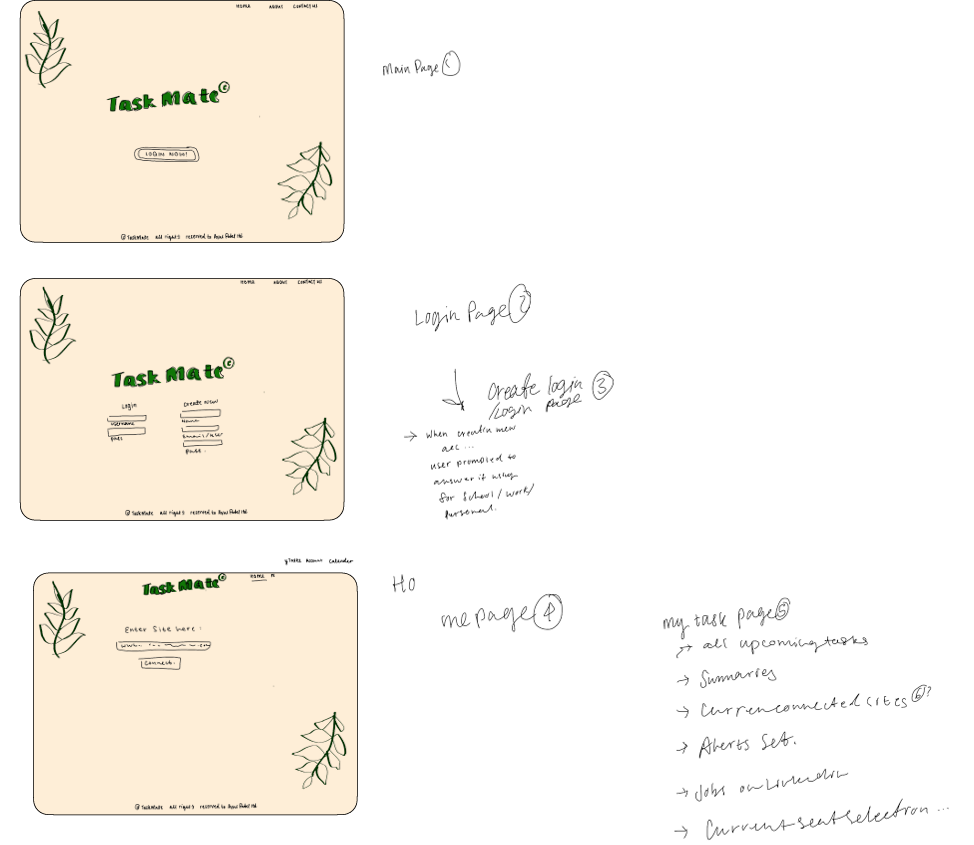 HOME ABOUT CONTACT US
Task Mate ©
LOGIN NOW!
@TaskMate all rights reserved to
Main Page 1
HOME ABOUT CONTACT US
Task Mate ©
Login
username
pass
create new
Name
Email/User
Pass.
@TaskMate all rights reserved to
Login Page 2
Create login 3
/Login page
→ When creatin new
acc ...
user prompted to
answer if using
for School / work/
Personal.
y Tasks Account Calender
Task Mate ©
HOME M
Enter Site here:
connect.
@TaskMate all rights reserved to
Ho
me page 4
My task page 5
→ all upcoming tasks
→ Summaries
→ Curren connected sites 6?
→ Alerts Set.
→ Jobs on Linkedin
→ Current seat selection ...